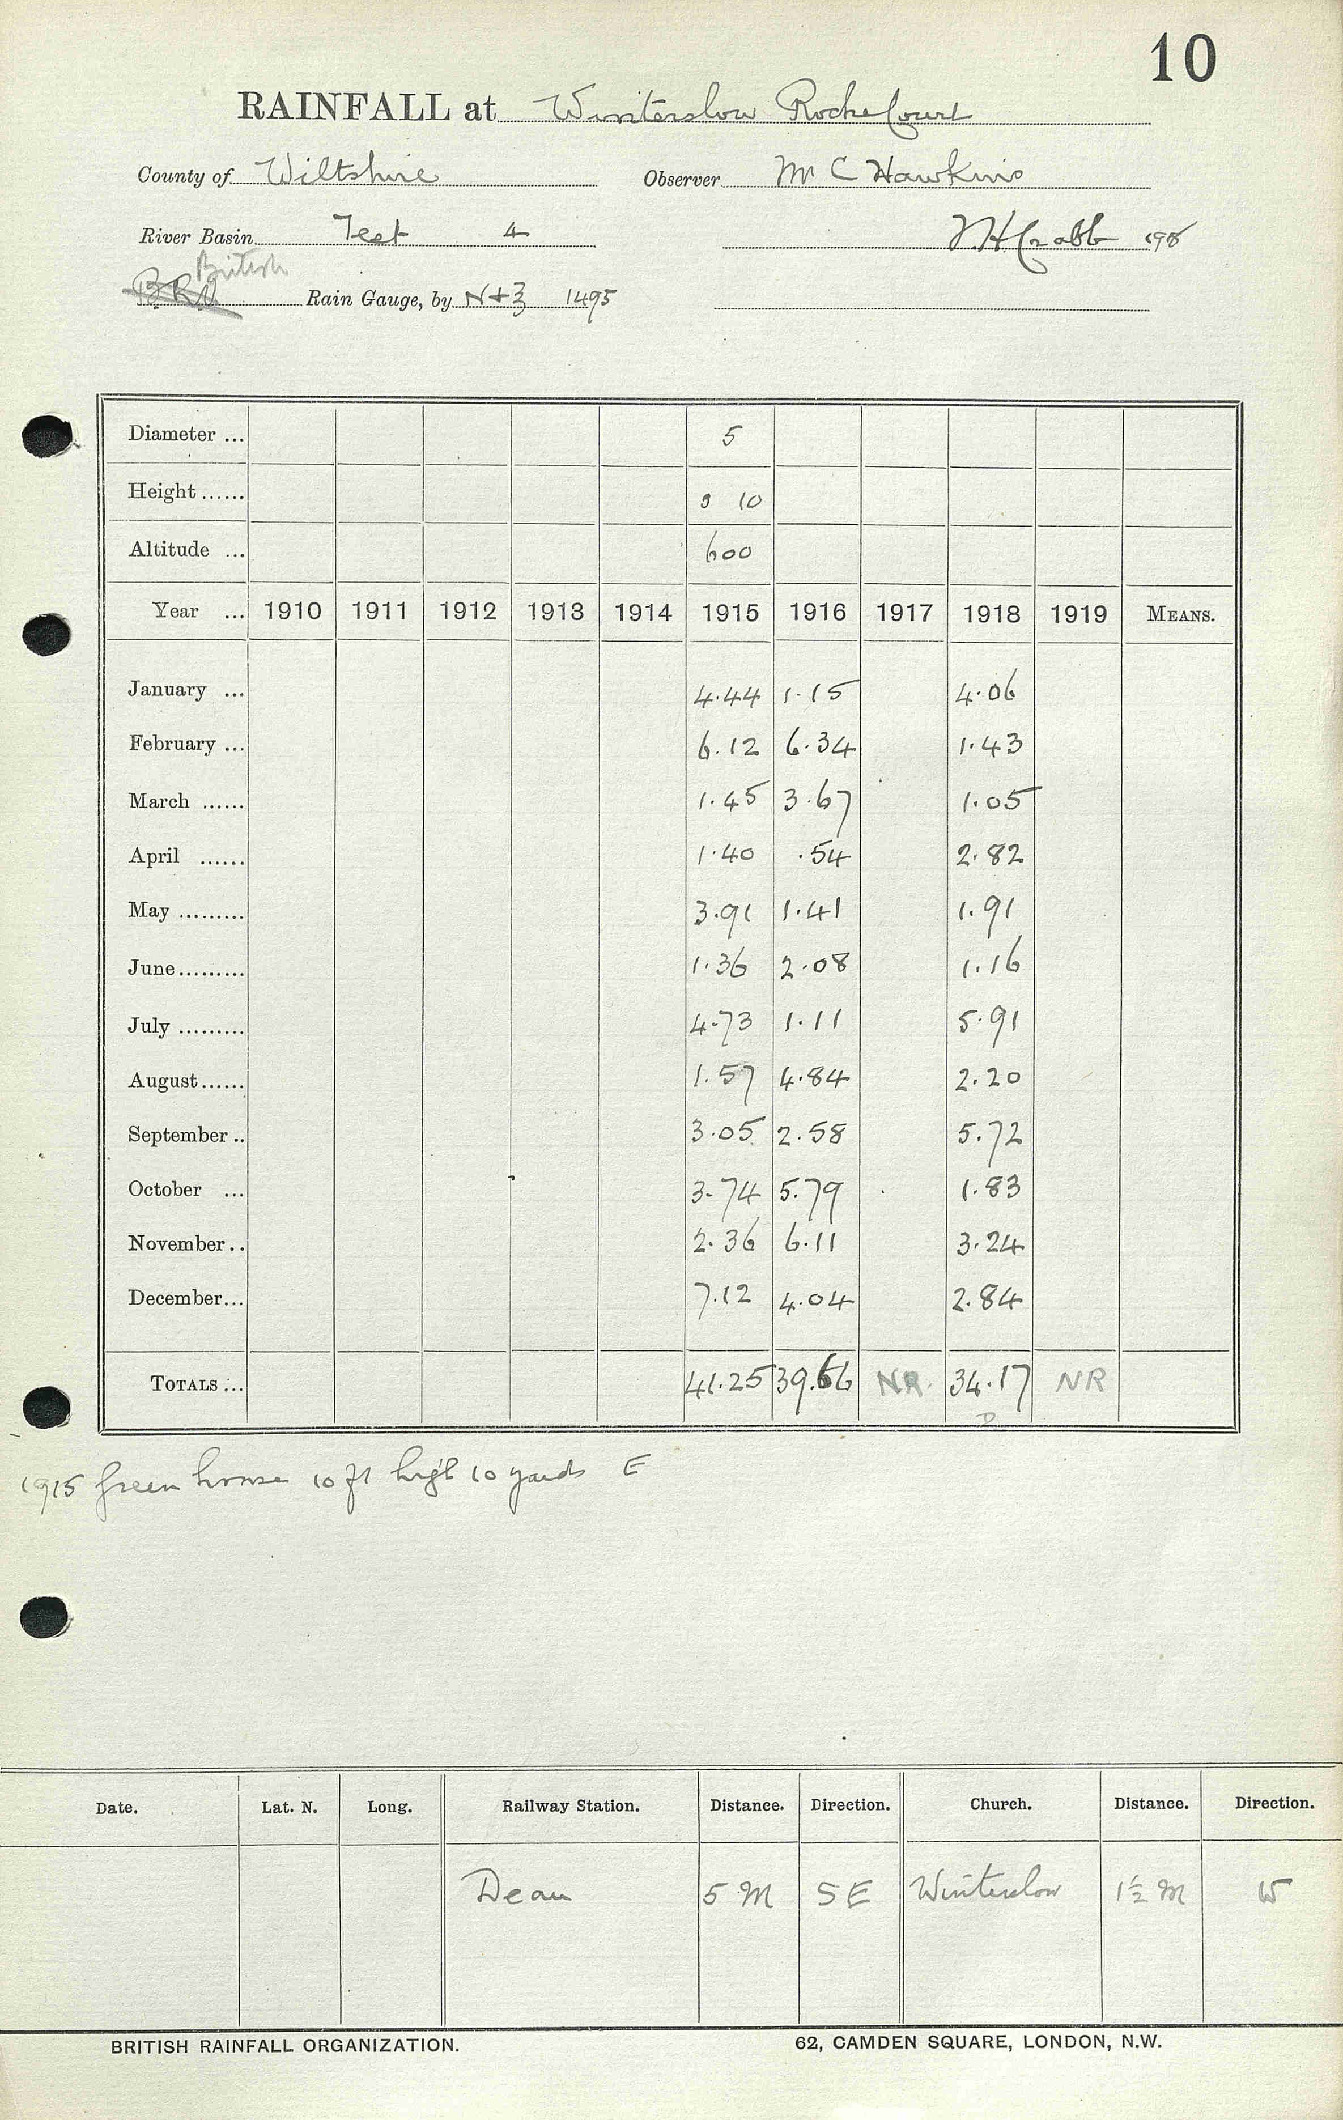 10
RAINFALL at Winterslow Roche Court
County of Wiltshire Observer Mr C Hawkins
River Basin Test 4
British
BRO Rain Gauge, by N+Z 1495
Diameter ... 5
Height ...... 0 10
Altitude ... 600
Year ... 1910 1911 1912 1913 1914 1915 1916 1917 1918 1919 MEANS.
January ... 4.44 1.15 4.06
February ... 6.12 6.34 1.43
March ...... 1.45 3.67 1.05
April ...... 1.40 .54 2.82
May ......... 3.91 1.41 1.91
June......... 1.36 2.08 1.16
July ......... 4.73 1.11 5.91
August...... 1.57 4.84 2.20
September .. 3.05 2.58 5.72
October ... 3.74 5.79 1.83
November.. 2.36 6.11 3.24
December... 7.12 4.04 2.84
TOTALS ... 41.25 39.66 NR. 34.17 NR
D
1915 Green house 10 ft high 10 yards E
Date. Lat. N. Long. Railway Station. Distance. Direction. Church. Distance. Direction.
Dean 5 M SE Winterslow 1½ M W
BRITISH RAINFALL ORGANIZATION. 62, CAMDEN SQUARE, LONDON, N.W.